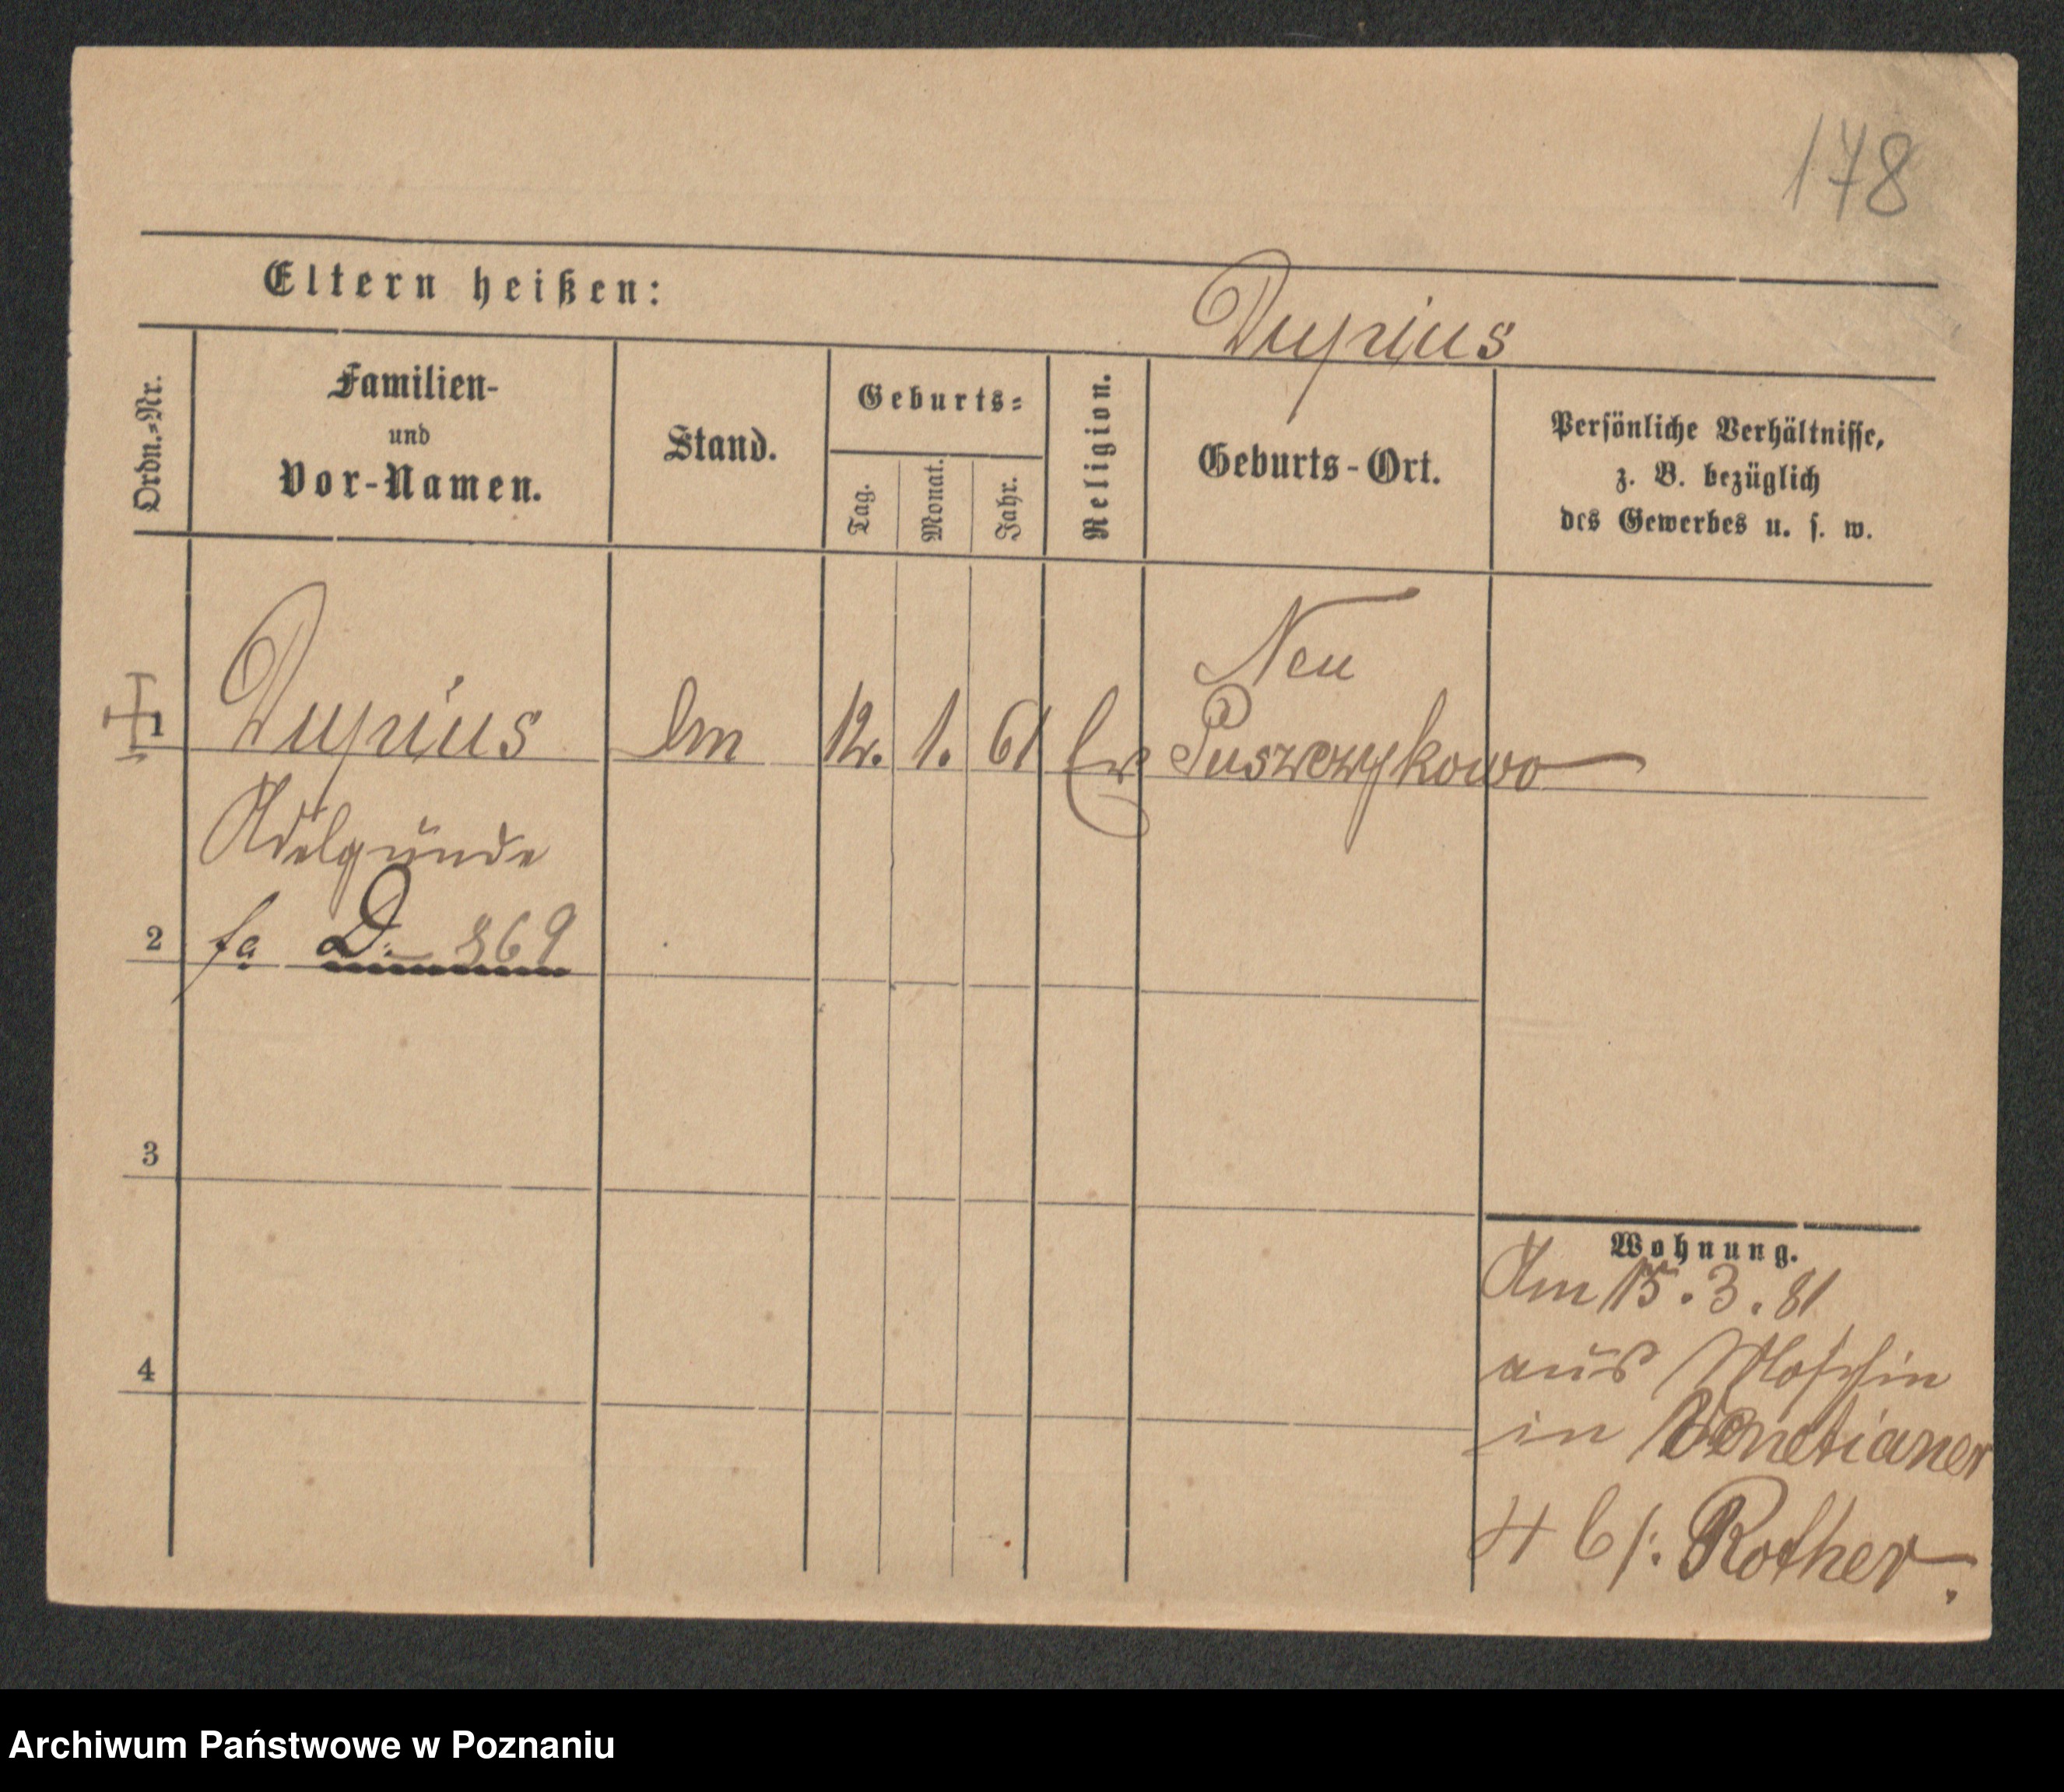 178
Eltern heißen:
Dupius
Ordn.-Nr.
Familien-
und
Vor-Namen.
Stand.
Geburts-
Tag.
Monat.
Jahr.
Religion.
Geburts-Ort.
Persönliche Verhältnisse,
z. B. bezüglich
des Gewerbes u. s. w.
Neu
1 Dupius 12. 1. 61 Ev Puszczykowo
Adelgunde
2 D. 869
3
4
Wohnung.
Am 15. 3. 81
aus Moschin
in Venetianer
4 b/: Rother.
Archiwum Państwowe w Poznaniu